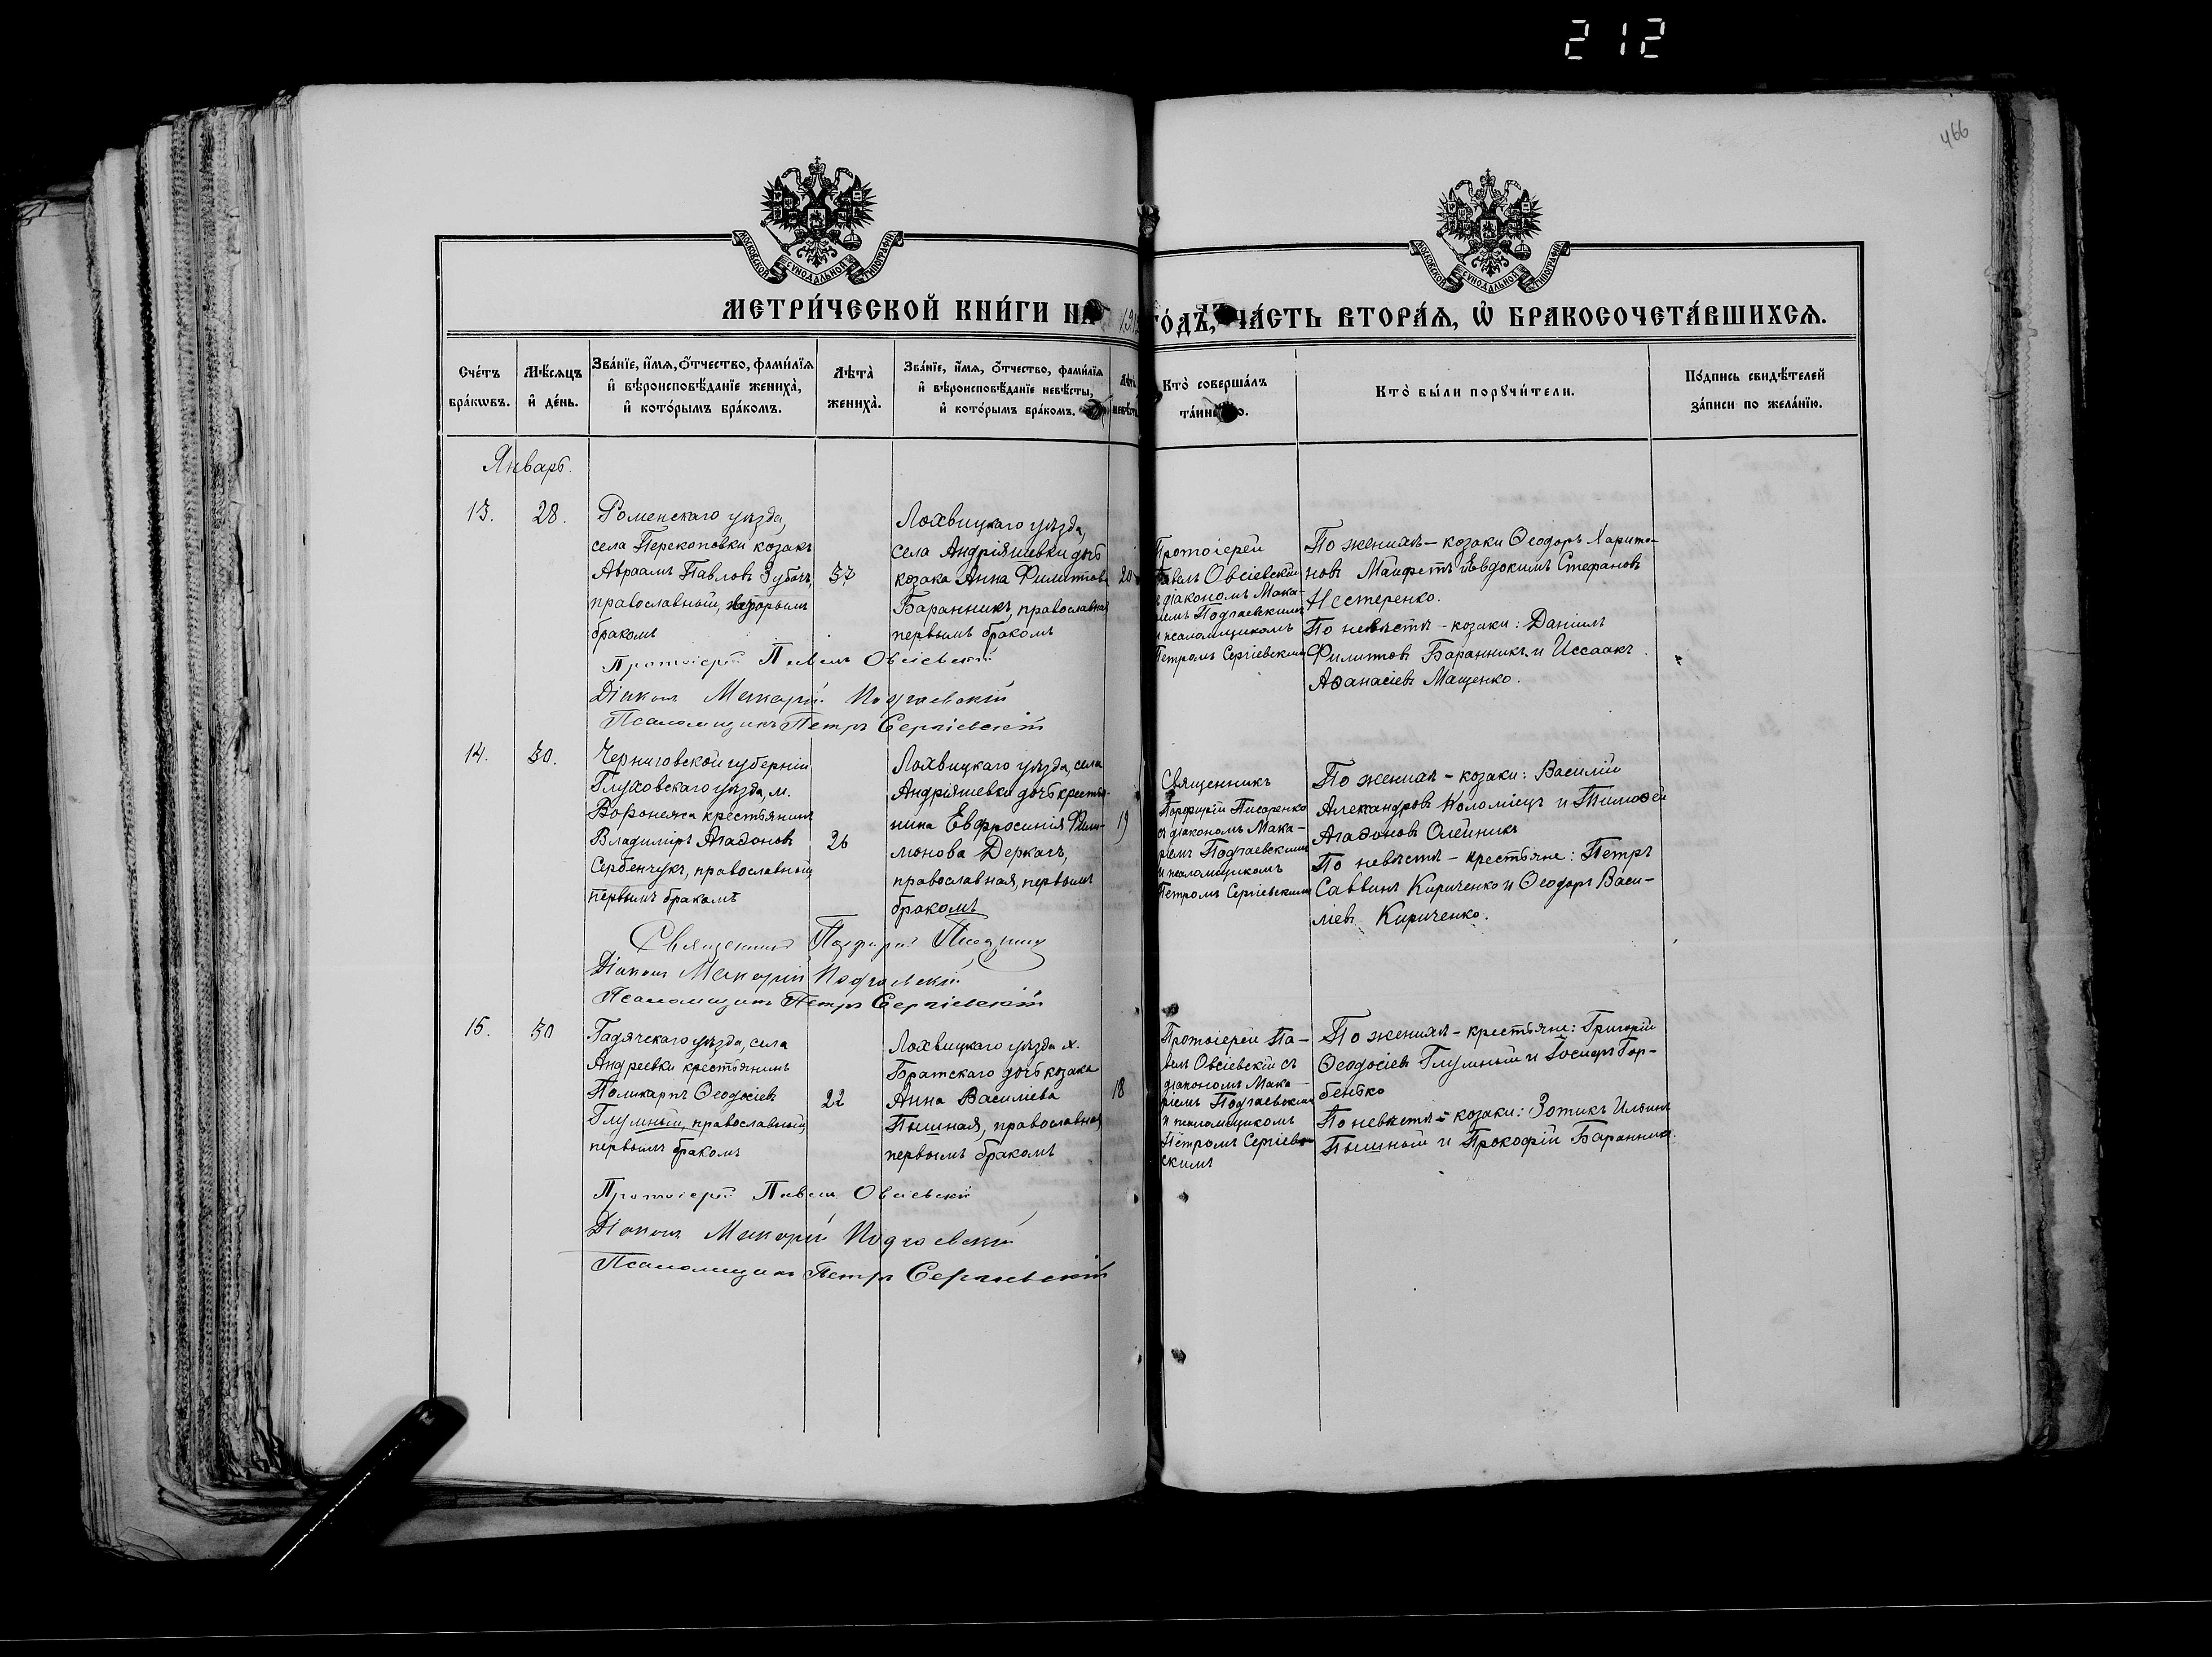 212
466
МОСКОВСКОЙ СУНОДАЛЬНОЙ ТИПОГРАФІИ
МОСКОВСКОЙ СУНОДАЛЬНОЙ ТИПОГРАФІИ
МЕТРИ́ЧЕСКОЙ КНИ́ГИ НА
ГО́ДЪ, ЧА́СТЬ ВТОРА́Ѧ, Ѡ҆ БРАКОСОЧЕТА́ВШИХСѦ.
Сче́тъ
бра́кѡвъ.
Мѣ́сѧцъ
и҆ де́нь.
Зва́нїе, и҆́мѧ, ѻ҆́тчество, фами́лїѧ
и҆ вѣроисповѣ́данїе жениха̀,
и҆ кото́рымъ бра́комъ.
Лѣта̀
жениха̀.
Зва́нїе, и҆́мѧ, ѻ҆́тчество, фами́лїѧ
и҆ вѣроисповѣ́данїе невѣ́сты,
и҆ кото́рымъ бра́комъ.
Кто̀ соверша́лъ
Кто̀ бы́ли порꙋчи́тели.
По́дпись свидѣ́телей
за́писи по жела́нїю.
Январь.
13.
28.
Роменскаго уѣзда,
села Перекоповки козакъ
Авраамъ Павловъ Зубачъ,
православный, вторымъ
бракомъ
37
Лохвицкаго уѣзда,
села Андріяшевки дочь
козака Анна Филиппова
Баранникъ, православная
первымъ бракомъ
20
Протоіерей
Павелъ Овсіевскій
съ діакономъ Мака-
ріемъ Подгаевскимъ
и псаломщикомъ
Петромъ Сергіевскимъ
По женихѣ - козаки Ѳеодоръ Харито-
новъ Манфетъ и Евдокимъ Стефановъ
Нестеренко.
По невѣстѣ - козаки: Даніилъ
Филипповъ Баранникъ и Иссаакъ
Аѳанасіевъ Мащенко.
Протоіерей Павелъ Овсіевскій
Діаконъ Макарій Подгаевскій
Псаломщикъ Петръ Сергіевскій
14.
30.
Черниговской губерніи
Глуховскаго уѣзда, м.
Воронежа крестьянинъ
Владиміръ Агаѳоновъ
Сербенчукъ, православный
первымъ бракомъ
26
Лохвицкаго уѣзда, села
Андріяшевки дочь крестья-
нина Евфросинія Фили-
монова Деркачъ,
православная, первымъ
бракомъ
19
Священникъ
Порфирій Писаренко
съ діакономъ Мака-
ріемъ Подгаевскимъ
и псаломщикомъ
Петромъ Сергіевскимъ
По женихѣ - козаки: Василій
Александровъ Коломіецъ и Тимоѳей
Агаѳоновъ Олейникъ
По невѣстѣ - крестьяне: Петръ
Саввинъ Кириченко и Ѳеодоръ Васи-
ліевъ Кириченко.
Священникъ Порфирій
Діаконъ Макарій Подгаевскій
Псаломщикъ Петръ Сергіевскій
15.
30
Гадячскаго уѣзда, села
Андреевки крестьянинъ
Поликарпъ Ѳеодосіевъ
Глумный, православный,
первымъ бракомъ
22
Лохвицкаго уѣзда х.
дочь козака
Анна Василіева
Пышная, православная
первымъ бракомъ
18
Протоіерей Па-
велъ Овсіевскій съ
діакономъ Мака-
ріемъ Подгаевскимъ
и псаломщикомъ
Петромъ Сергіев-
скимъ
По женихѣ - крестьяне: Григорій
Ѳеодосіевъ Глумный и Іосифъ Гор-
бенько
По невѣстѣ - козаки: Зотикъ Ильинъ
Пышный и Прокофій Баранникъ.
Протоіерей Павелъ Овсіевскій
Діаконъ Макарій Подгаевскій
Псаломщикъ Петръ Сергіевскій